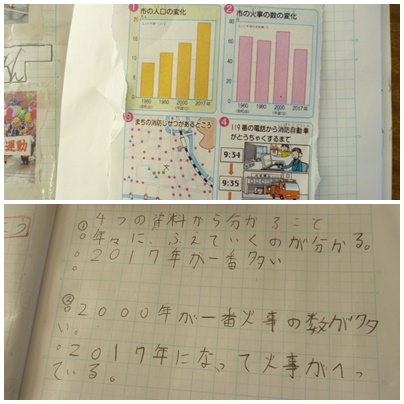 1 市の人口の変化
200
150
100
50
0
1960 1980 2000 2017年
2 市の火事の数の変化
80
60
40
20
0
1960 1980 2000 2017年
3 まちの消防しせつがあるところ
4 119番の電話から消防自動車
がとうちゃくするまで
9:34
9:35
運動
4つの資料から分かること
① 年々に、ふえていくのが分かる。
2017年が一番多い
② 2000年が一番火事の数が多
い。
2017年になって火事がへっ
ている。